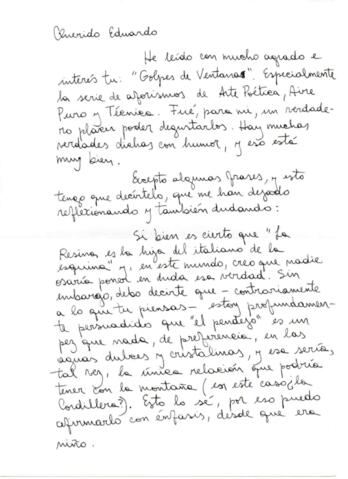 Querido Eduardo
He leído con mucho agrado e
interés tu: "Golpes de Ventanas". Especialmente
la serie de aforismos de Arte Poética, Aire
Puro y Técnica. Fué, para mi, un verdade-
ro placer poder degustarlos. Hay muchas
verdades dichas con humor, y eso está
muy bien.
Excepto algunas frases, y esto
tengo que decírtelo, que me han dejado
reflexionando y también dudando:
Si bien es cierto que "La
Resina es la hija del italiano de la
esquina" y, en este mundo, creo que nadie
osaría poner en duda esa verdad. Sin
embargo, debo decirte que - contrariamente
a lo que tu piensas - estoy profundamen-
te persuadido que "el pendejo" es un
pez que nada, de preferencia, en las
aguas dulces y cristalinas, y esa sería,
tal vez, la única relación que podría
tener con la montaña (¿en este caso ¿la
Cordillera?). Esto lo sé, por eso puedo
afirmarlo con énfasis, desde que era
niño.